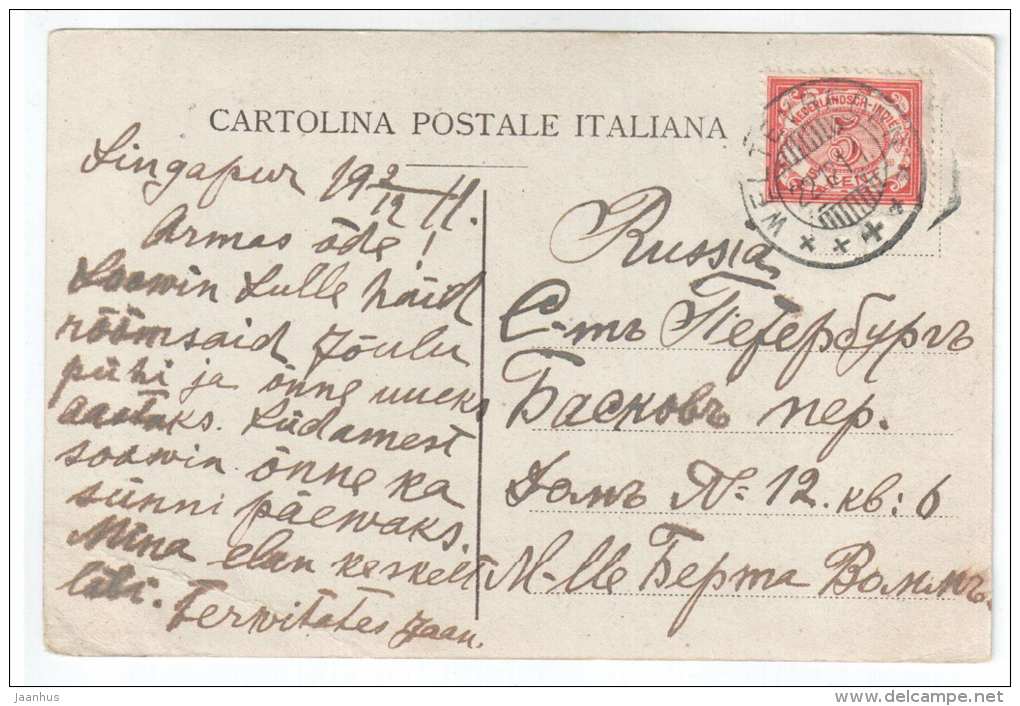 CARTOLINA POSTALE ITALIANA
NEDERLANDSCH-INDIË
5
CENT
Singapur 19 2/12 11.
Armas õde!
Soowin Sulle häid
rõõmsaid Jõulu
pühi ja õnne uueks
aastaks. Südamest
soowin õnne ka
sünni päewaks.
Mina elan keskelt
läbi. Terwitates Jaan.
Russia
С-тъ Петербургъ
Басковъ пер.
Домъ № 12. кв: 6
M-lle Берта Воммъ.
jaanhus
www.delcampe.net